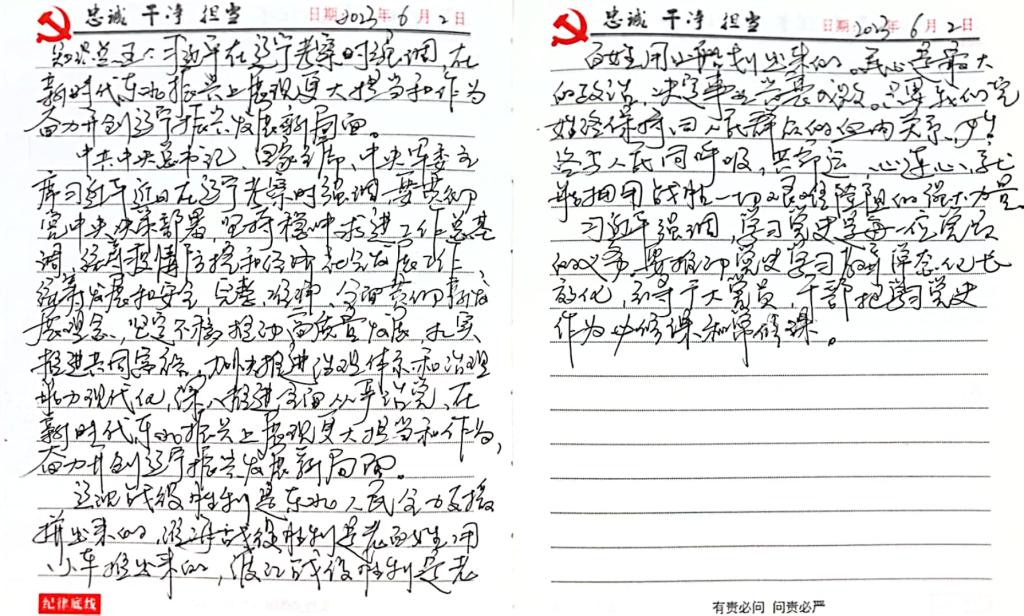 忠诚 干净 担当 日期2023年6月2日
知识点五：习近平在辽宁考察时强调，在
新时代东北振兴上展现更大担当和作为
奋力开创辽宁振兴发展新局面。
中共中央总书记、国家主席、中央军委主
席习近平近日在辽宁考察时强调，要贯彻
党中央决策部署，坚持稳中求进工作总基
调，统筹疫情防控和经济社会发展工作
统筹发展和安全，完整、准确、全面贯彻新发
展理念，坚定不移推动高质量发展，扎实
推进共同富裕，加快推进治理体系和治理
能力现代化，深入推进全面从严治党，在
新时代东北振兴上展现更大担当和作为，
奋力开创辽宁振兴发展新局面。
辽沈战役胜利是东北人民全力支援
拼出来的，淮海战役胜利是老百姓用
小车推出来的，渡江战役胜利是老
纪律底线
忠诚 干净 担当 日期2023年6月2日
百姓用小船划出来的。民心是最大
的政治，决定事业兴衰成败。只要我们党
始终保持同人民群众的血肉关系，始
终与人民同呼吸、共命运、心连心，就
能拥有战胜一切艰难险阻的强大力量
习近平强调，学习党史是每一位党员
的义务，要推动党史学习教育常态化长
效化，引导广大党员、干部把学习党史
作为必修课和常修课。
有责必问 问责必严